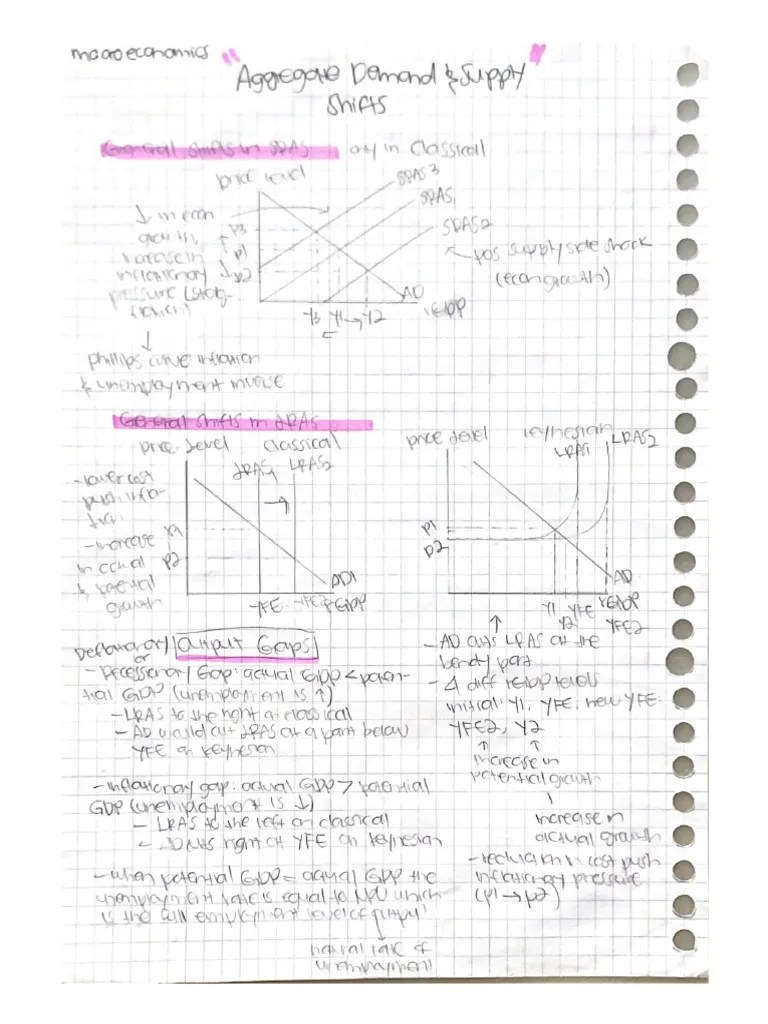 macroeconomics
"Aggregate Demand & Supply
Shifts"
General shifts in SRAS only in Classical
price level
SRAS3
SRAS1
SRAS2
↓ in econ
growth,
increase in
inflationary
pressure (stag-
flation)
P3
P1
P2
← pos supply side shock
(econ growth)
AD
Y3 Y1 → Y2
rGDP
↓
phillips curve: inflation
& unemployment inverse
General shifts in LRAS
price level classical
LRAS1 LRAS2
- lower cost
push infla-
tion
- increase
in actual
& potential
growth
P1
P2
AD1
YFE YFE2 rGDP
price level keynesian
LRAS1 LRAS2
P1
P2
AD
Y1 YFE rGDP
Y2 YFE2
Deflationary/ Output Gaps
or
- Recessionary Gap: actual GDP < poten-
tial GDP (unemployment is ↑)
- LRAS to the right on classical
- AD would cut LRAS at a part below
YFE on keynesian
- inflationary gap: actual GDP > potential
GDP (unemployment is ↓)
- LRAS to the left on classical
- AD cuts right at YFE on keynesian
- when potential GDP = actual GDP the
unemployment rate is equal to NRU which
is the full employment level of output
↓
natural rate of
unemployment
- AD cuts LRAS at the
bendy part
- 4 diff rGDP levels
initial: Y1, YFE, new YFE:
YFE2, Y2
increase in
potential growth
increase in
actual growth
- reduction in cost push
inflationary pressure
(P1 → P2)